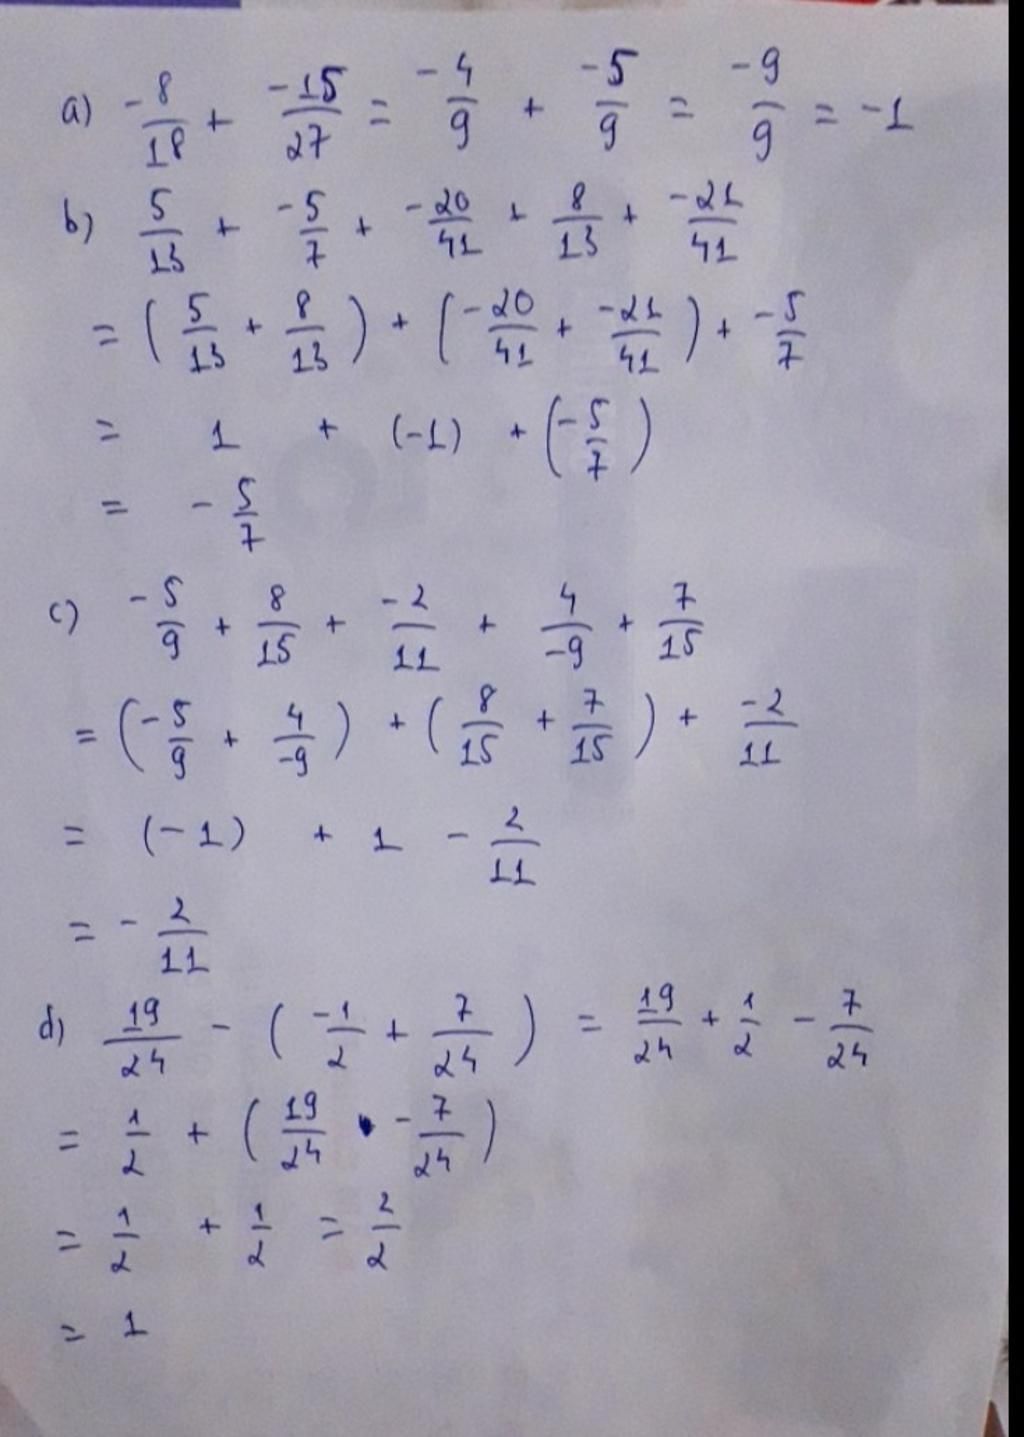 a) -8/18 + -15/27 = -4/9 + -5/9 = -9/9 = -1
b) 5/13 + -5/7 + -20/41 + 8/13 + -21/41
= (5/13 + 8/13) + (-20/41 + -21/41) + -5/7
= 1 + (-1) + (-5/7)
= -5/7
c) -5/9 + 8/15 + -2/11 + 4/-9 + 7/15
= (-5/9 + 4/-9) + (8/15 + 7/15) + -2/11
= (-1) + 1 - 2/11
= -2/11
d) 19/24 - (-1/2 + 7/24) = 19/24 + 1/2 - 7/24
= 1/2 + (19/24 - 7/24)
= 1/2 + 1/2 = 2/2
= 1